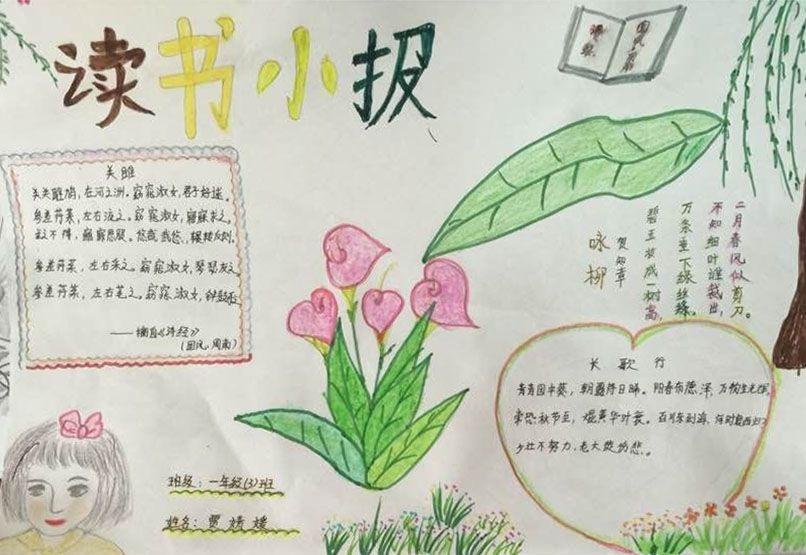 读书小报
诗歌
国风·周南
关雎
关关雎鸠，在河之洲。窈窕淑女，君子好逑。
参差荇菜，左右流之。窈窕淑女，寤寐求之。
求之不得，寤寐思服。悠哉悠哉，辗转反侧。
参差荇菜，左右采之。窈窕淑女，琴瑟友之。
参差荇菜，左右芼之。窈窕淑女，钟鼓乐之
——摘自《诗经》
（国风·周南）
咏柳
贺知章
碧玉妆成一树高，
万条垂下绿丝绦。
不知细叶谁裁出，
二月春风似剪刀。
长歌行
青青园中葵，朝露待日晞。阳春布德泽，万物生光辉。
常恐秋节至，焜黄华叶衰。百川东到海，何时复西归？
少壮不努力，老大徒伤悲。
班级：一年级(3)班
姓名：贾婧媛